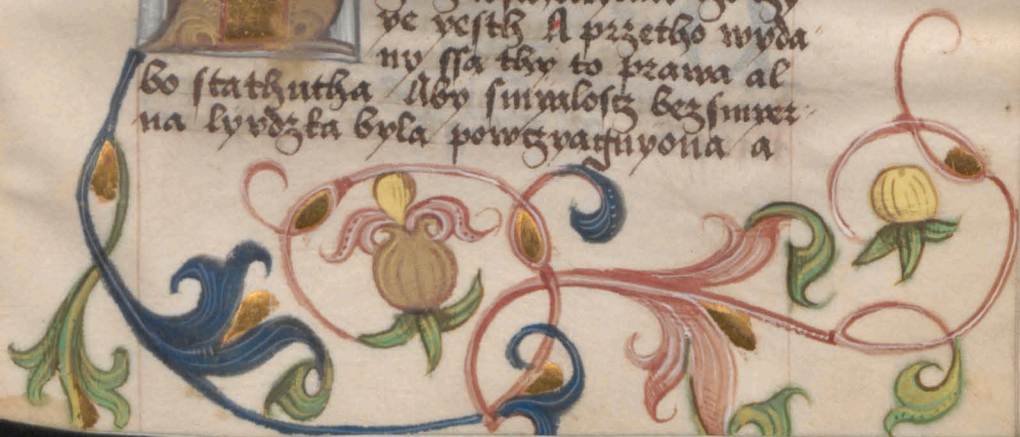 ye yesth A przetho wyda
ny ssą thy to prawa al
bo stathutha Aby smyaloscz bezsmyer
na lyvdzka byla powczyagnyona a